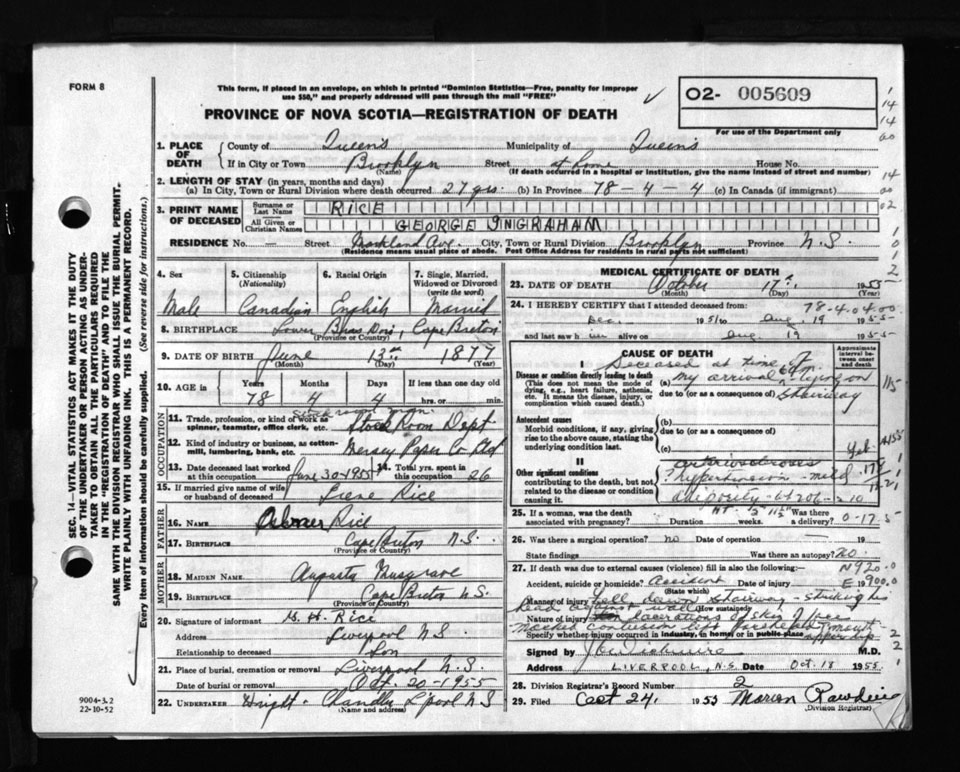 FORM 8
This form, if placed in an envelope, on which is printed "Dominion Statistics—Free, penalty for improper
use $50," and properly addressed will pass through the mail "FREE"
PROVINCE OF NOVA SCOTIA—REGISTRATION OF DEATH
O2- 005609
For use of the Department only
1. PLACE OF DEATH County of Queens Municipality of Queens
If in City or Town Brooklyn Street at home House No.
(Name) (If death occurred in a hospital or institution, give the name instead of street and number)
2. LENGTH OF STAY (in years, months and days)
(a) In City, Town or Rural Division where death occurred 27 yrs. (b) In Province 78-4-4 (c) In Canada (if immigrant)
3. PRINT NAME OF DECEASED Surname or Last Name RICE
All Given or Christian Names GEORGE INGRAHAM
RESIDENCE No. — Street Markland Ave. City, Town or Rural Division Brooklyn Province N.S.
(Residence means usual place of abode. Post Office Address for residents in rural parts not sufficient)
4. Sex Male
5. Citizenship (Nationality) Canadian
6. Racial Origin English
7. Single, Married, Widowed or Divorced (write the word) Married
8. BIRTHPLACE Lower Bras Dor, Cape Breton
(Province or Country)
9. DATE OF BIRTH June 13th 1877
(Month) (Day) (Year)
10. AGE in Years 78 Months 4 Days 4 If less than one day old hrs. or min.
OCCUPATION
11. Trade, profession, or kind of work as spinner, teamster, office clerk, etc. Stock Room Dept
12. Kind of industry or business, as cotton-mill, lumbering, bank, etc. Mersey Paper Co Ltd
13. Date deceased last worked at this occupation June 30-1955 14. Total yrs. spent in this occupation 26
15. If married give name of wife or husband of deceased Rice
FATHER
16. NAME Rice
17. BIRTHPLACE Cape Breton N.S.
(Province or Country)
MOTHER
18. MAIDEN NAME Augusta Musgrave
19. BIRTHPLACE Cape Breton N.S.
(Province or Country)
20. Signature of informant G. H. Rice
Address Liverpool N.S.
Relationship to deceased Son
21. Place of burial, cremation or removal Liverpool N.S.
Date of burial or removal Oct. 20-1955
22. UNDERTAKER Wright - Chandler L'pool N S
(Name and address)
MEDICAL CERTIFICATE OF DEATH
23. DATE OF DEATH October 17th 1955
(Month) (Day) (Year)
78-4-04-00
24. I HEREBY CERTIFY that I attended deceased from:
Dec. 1951 to Aug. 19 1955
and last saw him alive on Aug. 19 1955
CAUSE OF DEATH
Approximate interval between onset and death
I
Disease or condition directly leading to death
(This does not mean the mode of dying, e.g., heart failure, asthenia, etc. It means the disease, injury, or complication which caused death.)
(a) Deceased at time of my arrival - lying on stairway
due to (or as a consequence of)
Antecedent causes
Morbid conditions, if any, giving rise to the above cause, stating the underlying condition last.
(b)
due to (or as a consequence of)
(c)
II
Other significant conditions contributing to the death, but not related to the disease or condition causing it.
arteriosclerosis
? hypertension - mild
adiposity
25. If a woman, was the death associated with pregnancy? Duration weeks. Was there a delivery?
26. Was there a surgical operation? no Date of operation — 19
State findings Was there an autopsy? no
27. If death was due to external causes (violence) fill in also the following:—
Accident, suicide or homicide? Accident Date of injury 19
(State which)
Manner of injury Fell down stairway - striking his head against wall
(How sustained)
Nature of injury lacerations of skin of face
Specify whether injury occurred in industry, in home, or in public place
Signed by M.D.
Address LIVERPOOL, N.S. Date Oct. 18 1955
28. Division Registrar's Record Number 2
29. Filed Oct 24, 1955 Marion
(Division Registrar)
SEC. 14—VITAL STATISTICS ACT MAKES IT THE DUTY
OF THE UNDERTAKER OR PERSON ACTING AS UNDER-
TAKER TO OBTAIN ALL THE PARTICULARS REQUIRED
IN THE "REGISTRATION OF DEATH" AND TO FILE THE
SAME WITH THE DIVISION REGISTRAR WHO SHALL ISSUE THE BURIAL PERMIT.
WRITE PLAINLY WITH UNFADING INK. THIS IS A PERMANENT RECORD.
Every item of information should be carefully supplied. (See reverse side for instructions.)
9004-3.2
22-10-52